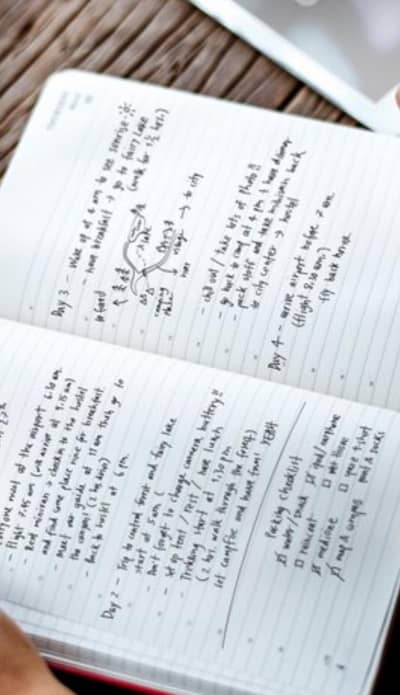 everyone meet at the airport 6.30 am.
- Flight 7.45 am (will arrive at 9.15 am)
- Rent minivan → check in to the hostel
and find some place nice for breakfast.
- Meet our guide at 11 am then go to
the campsit (2 hrs drive)
- Back to hostel at 6 pm.
Day 2 - Trip to central forest and fairy lake
start at 5 am (
- Don't forget to change camera battery!!
- Set up tent / rest / have lunch
- Trekking start at 1.30 pm
(2 hrs. walk through the forest)
set campfire and have fun! YEAH
Packing Checklist
water / snack
raincoat
medicine
map & compass
ipod / earphone
extra t-shirt
and 2 socks
Day 3 - Wake up at 4 am to see sunrise
- have breakfast → go to fairy lake
(walk for 1½ hrs.)
lake
→ to city
- chill out / take lots of photo!!
- go back to camp at 4 pm & have dinner
- pack stuff and take minivan back
to city center → hostel
Day 4 - arrive airport before 7 am.
(flight 8.30 am.)
fly back home